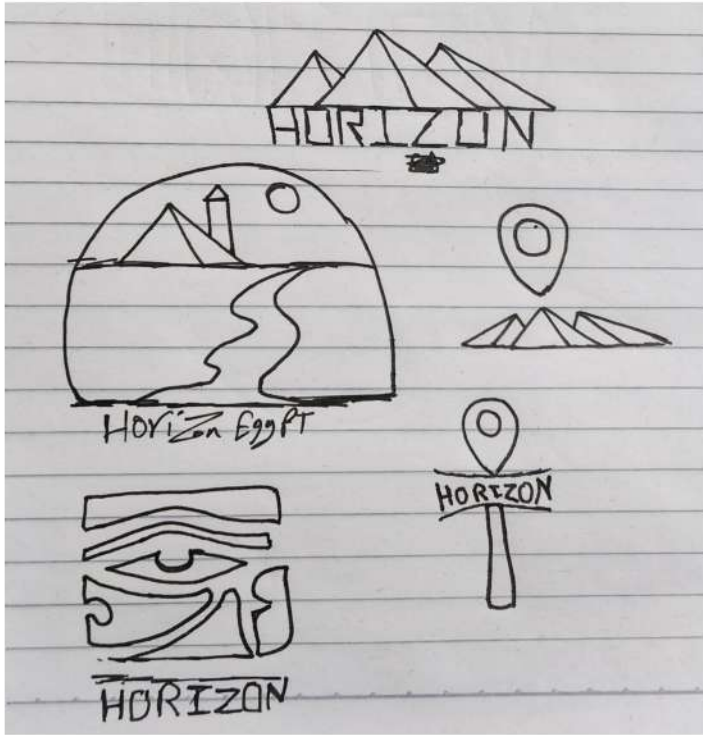 HORIZON
HoriZon EggPT
HORIZON
HORIZON